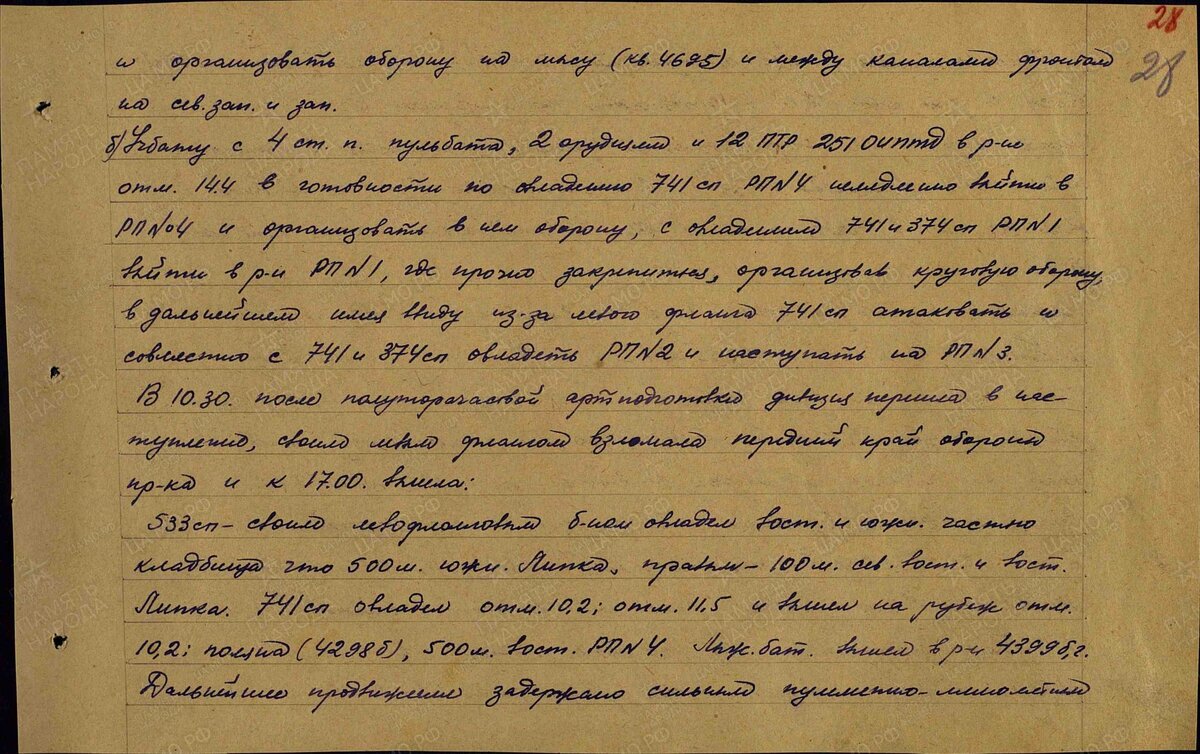 28
28
и организовать оборону на мысу (кв. 4695) и между каналами фронтом
на сев. зап. и зап.
б) Учбату с 4 ст. п. пульбата, 2 орудиями и 12 ПТР 251 ОИПТД в р-не
отм. 14.4 в готовности по овладению 741 сп РП №4 немедленно выйти в
РП №4 и организовать в нем оборону, с овладением 741 и 374 сп РП №1
выйти в р-н РП №1, где прочно закрепиться, организовав круговую оборону,
в дальнейшем имея ввиду из-за левого фланга 741 сп атаковать и
совместно с 741 и 374 сп овладеть РП №2 и наступать на РП №3.
В 10.30. после полуторачасовой артподготовки дивизия перешла в нас-
тупление, своим левым флангом взломала передний край обороны
пр-ка и к 17.00. вышла:
533 сп – своим левофланговым б-ном овладел вост. и южн. частью
кладбища что 500 м. южн. Липка, правым – 100 м. сев. вост. и вост.
Липка. 741 сп овладел отм. 10,2; отм. 11.5 и вышел на рубеж отм.
10,2; поляна (4298б), 500 м. вост. РП №4. Лыж. бат. вышел в р-н 4399б,г.
Дальнейшее продвижение задержано сильным пулеметно-минометным